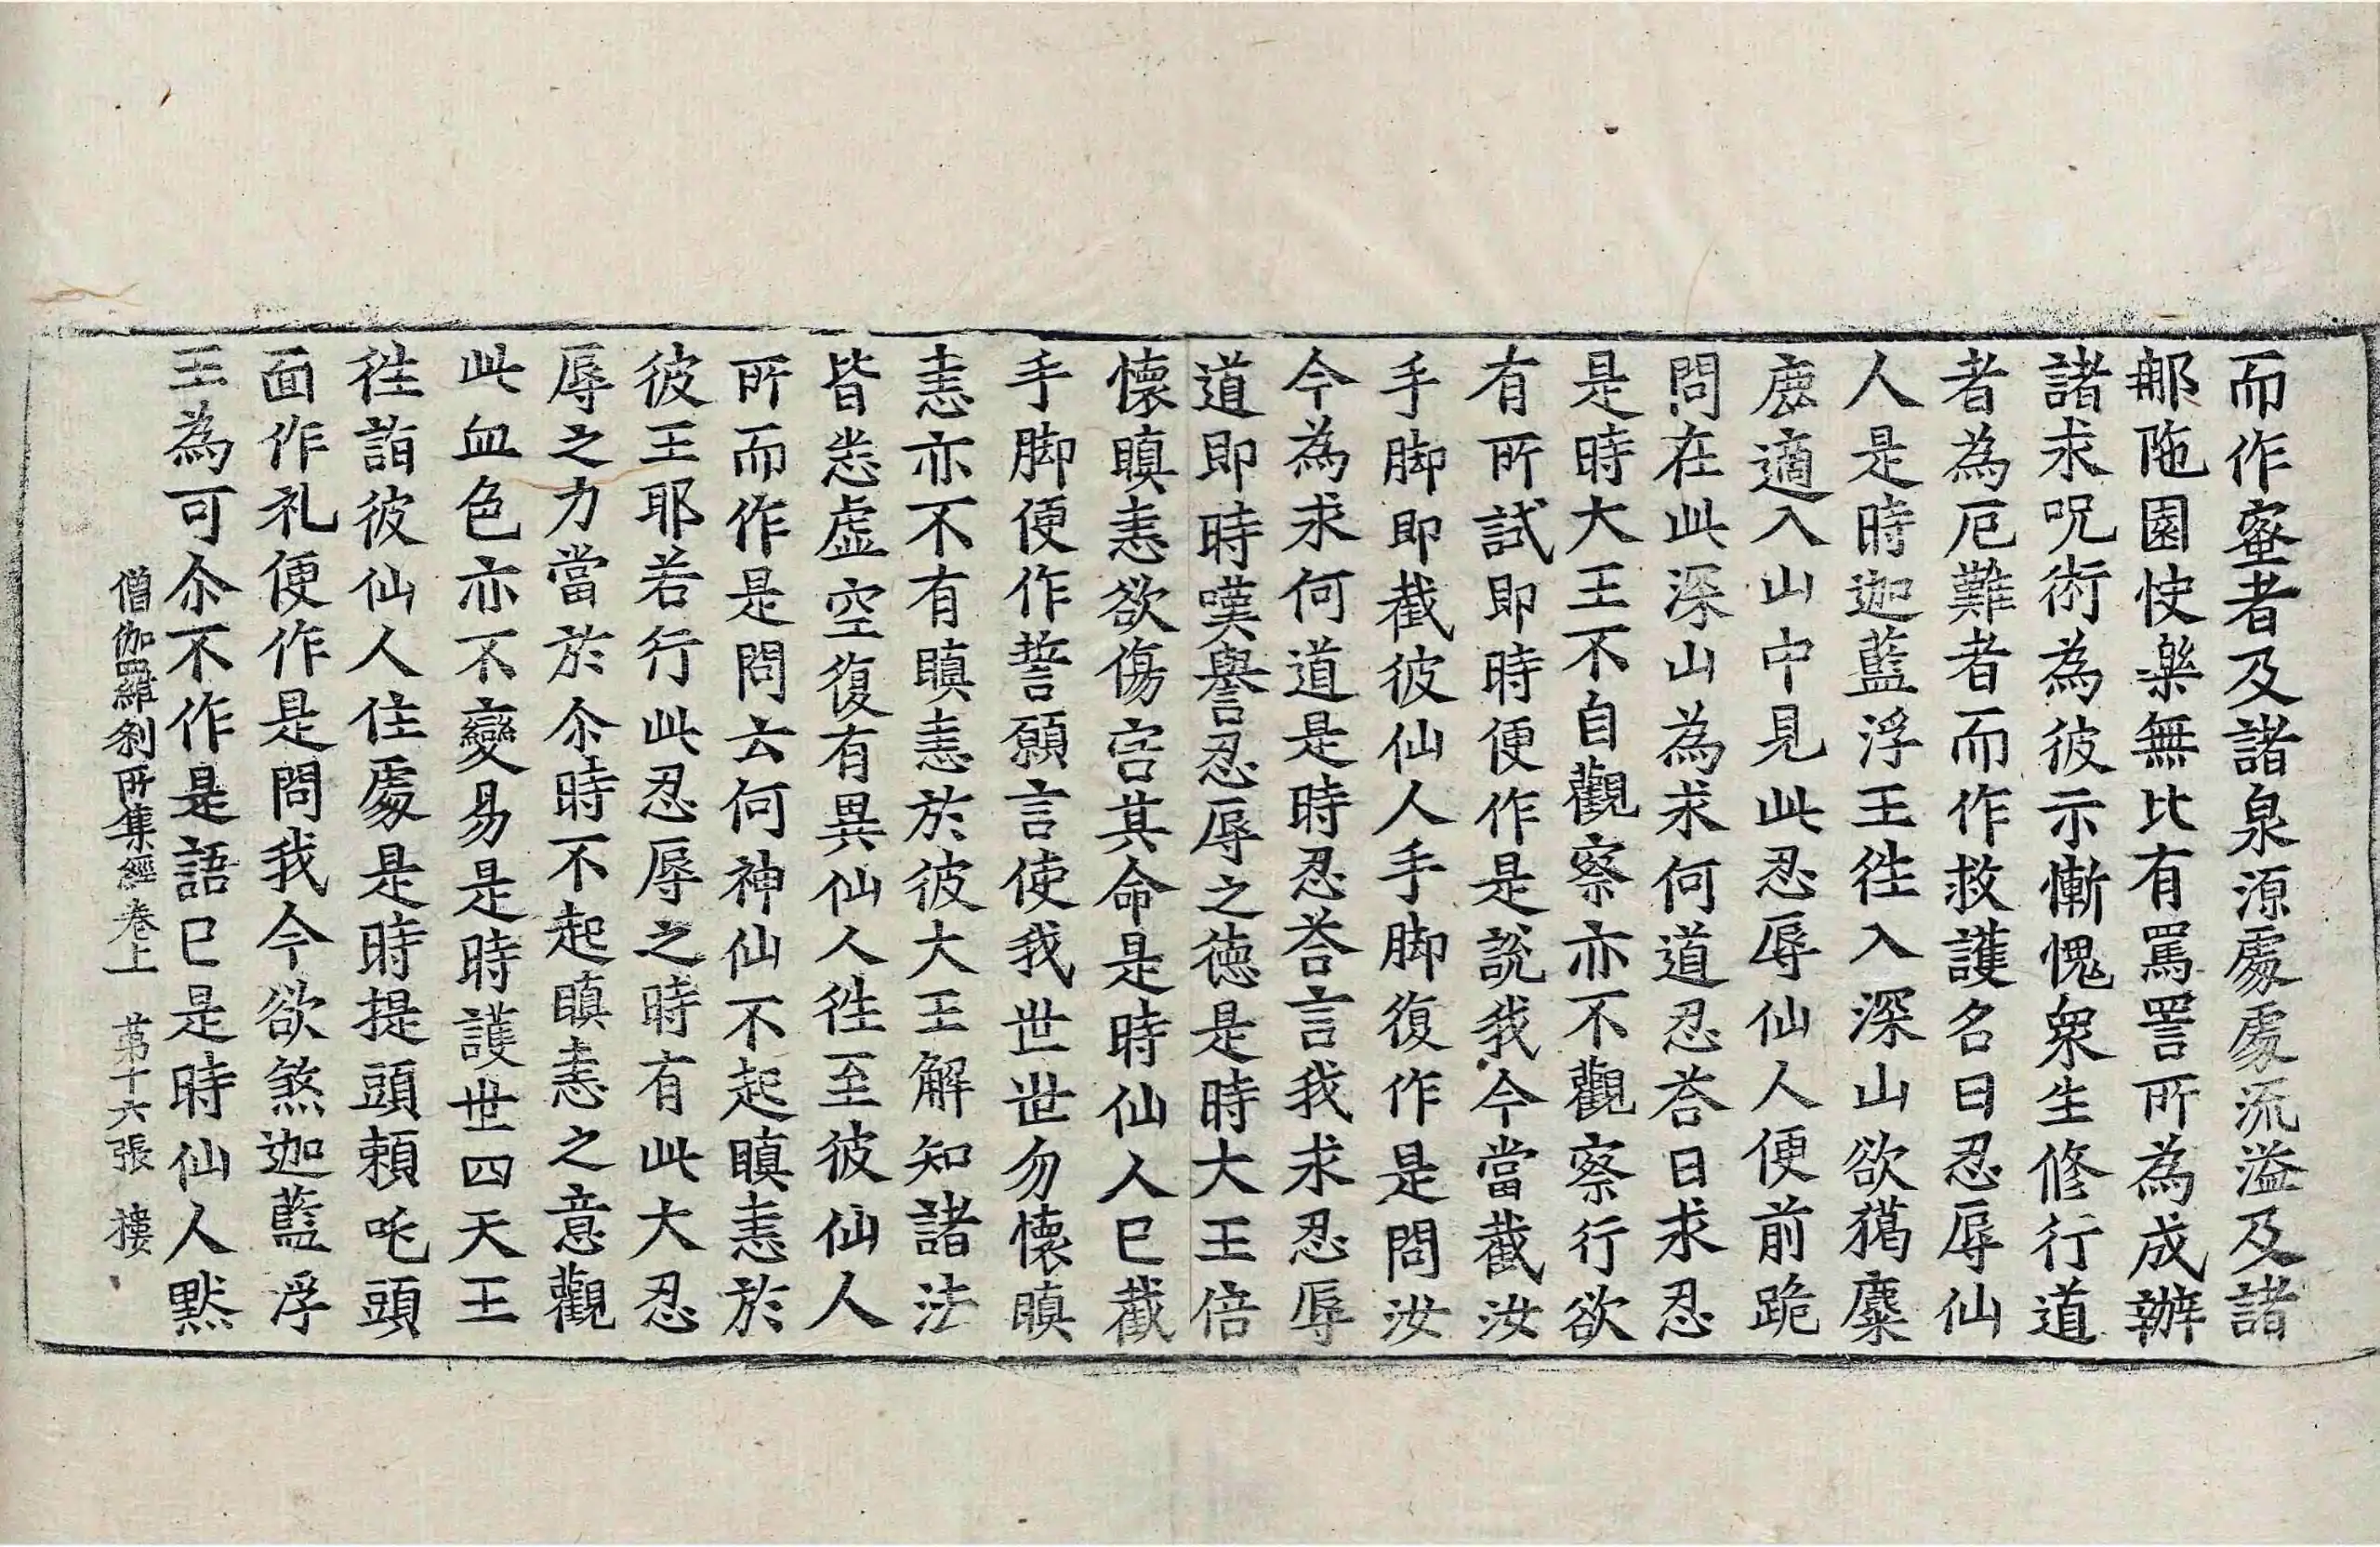 而作蜜者及諸泉源處處流溢及諸
那陁園快樂無比有罵詈所為成辦
諸求呪術為彼示慚愧衆生修行道
者為厄難者而作救護名曰忍辱仙
人是時迦藍浮王徃入深山欲獦麋
鹿適入山中見此忍辱仙人便前跪
問在此深山為求何道忍荅曰求忍
是時大王不自觀察亦不觀察行欲
有所試即時便作是說我今當截汝
手脚即截彼仙人手脚復作是問汝
今為求何道是時忍荅言我求忍辱
道即時嘆譽忍辱之德是時大王倍
懷瞋恚欲傷害其命是時仙人已截
手脚便作誓願言使我世世勿懷瞋
恚亦不有瞋恚於彼大王解知諸法
皆悉虛空復有異仙人徃至彼仙人
所而作是問云何神仙不起瞋恚於
彼王耶若行此忍辱之時有此大忍
辱之力當於尒時不起瞋恚之意觀
此血色亦不變易是時護世四天王
徃詣彼仙人住處是時提頭頼吒頭
面作礼便作是問我今欲煞迦藍浮
王為可尒不作是語已是時仙人默
僧伽羅刹所集經卷上 苐十六張 樓